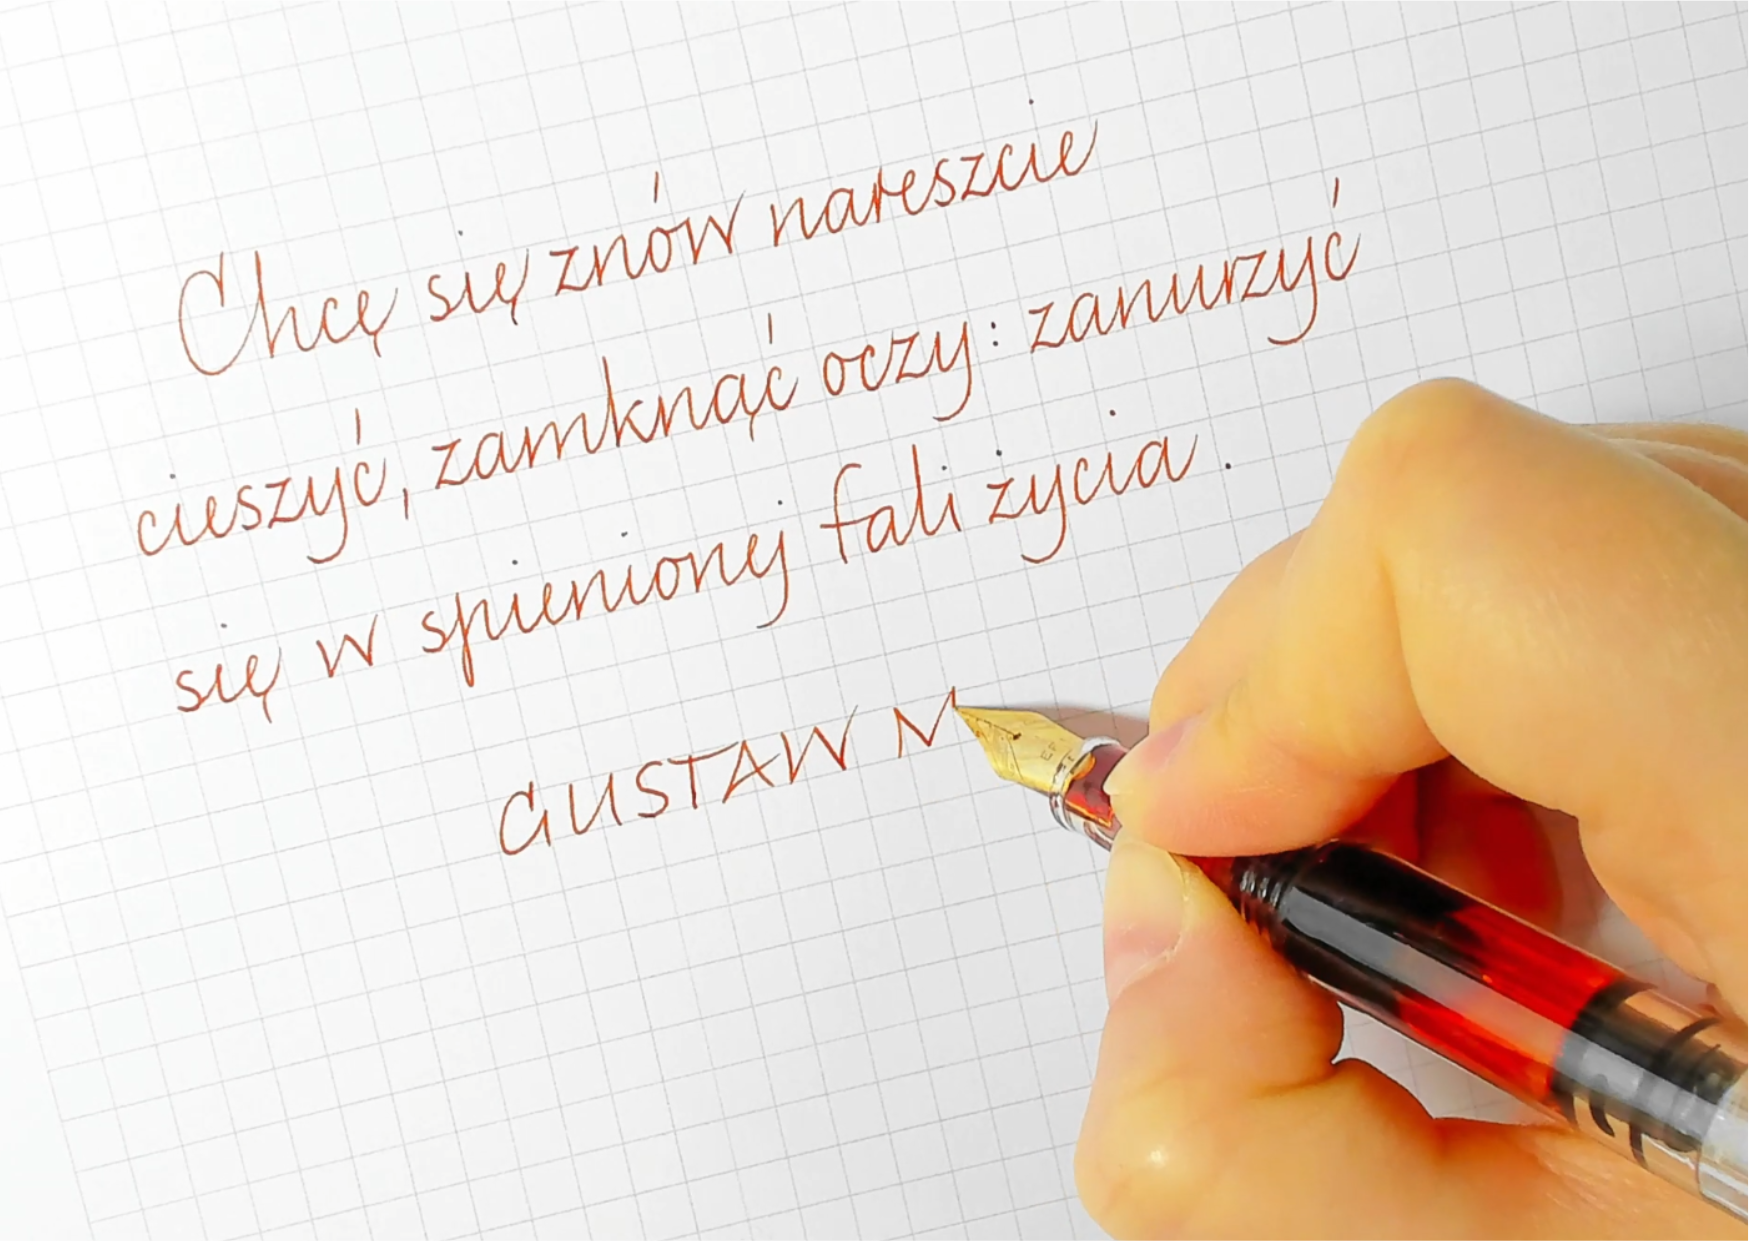 Chcę się znów nareszcie
cieszyć, zamknąć oczy: zanurzyć
się w spienionej fali życia.
GUSTAW M
EF